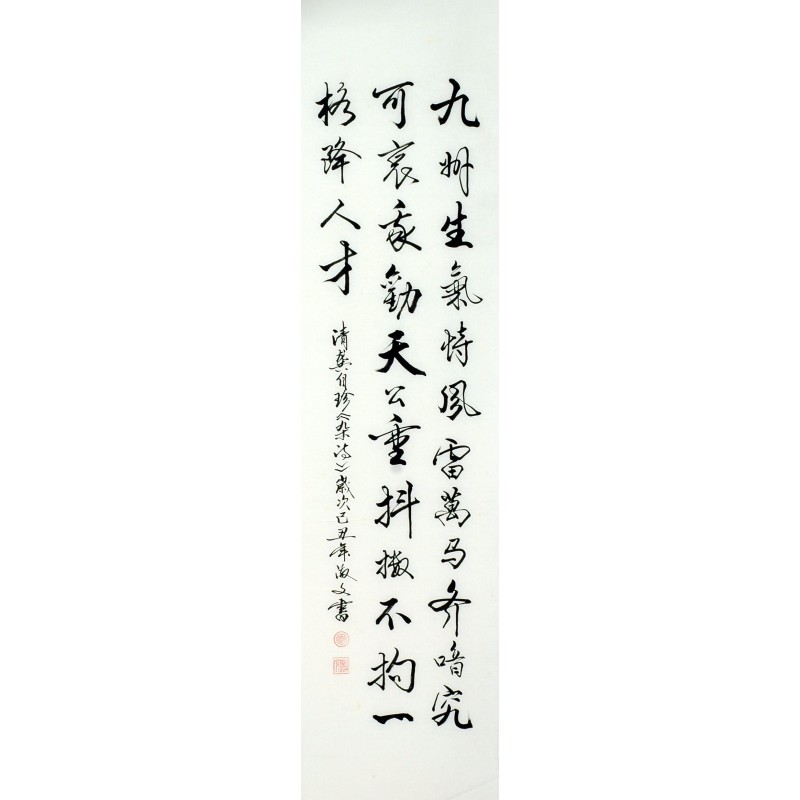 九州生氣恃風雷萬马齐喑究
可哀我勸天公重抖擞不拘一
格降人才
清龚自珍《杂诗》歲次己丑年文書